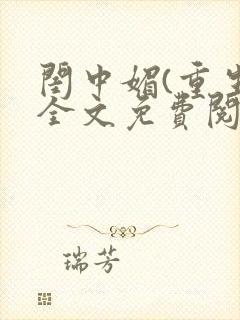 閨中媚(重生
全文免費閱
瑞芳